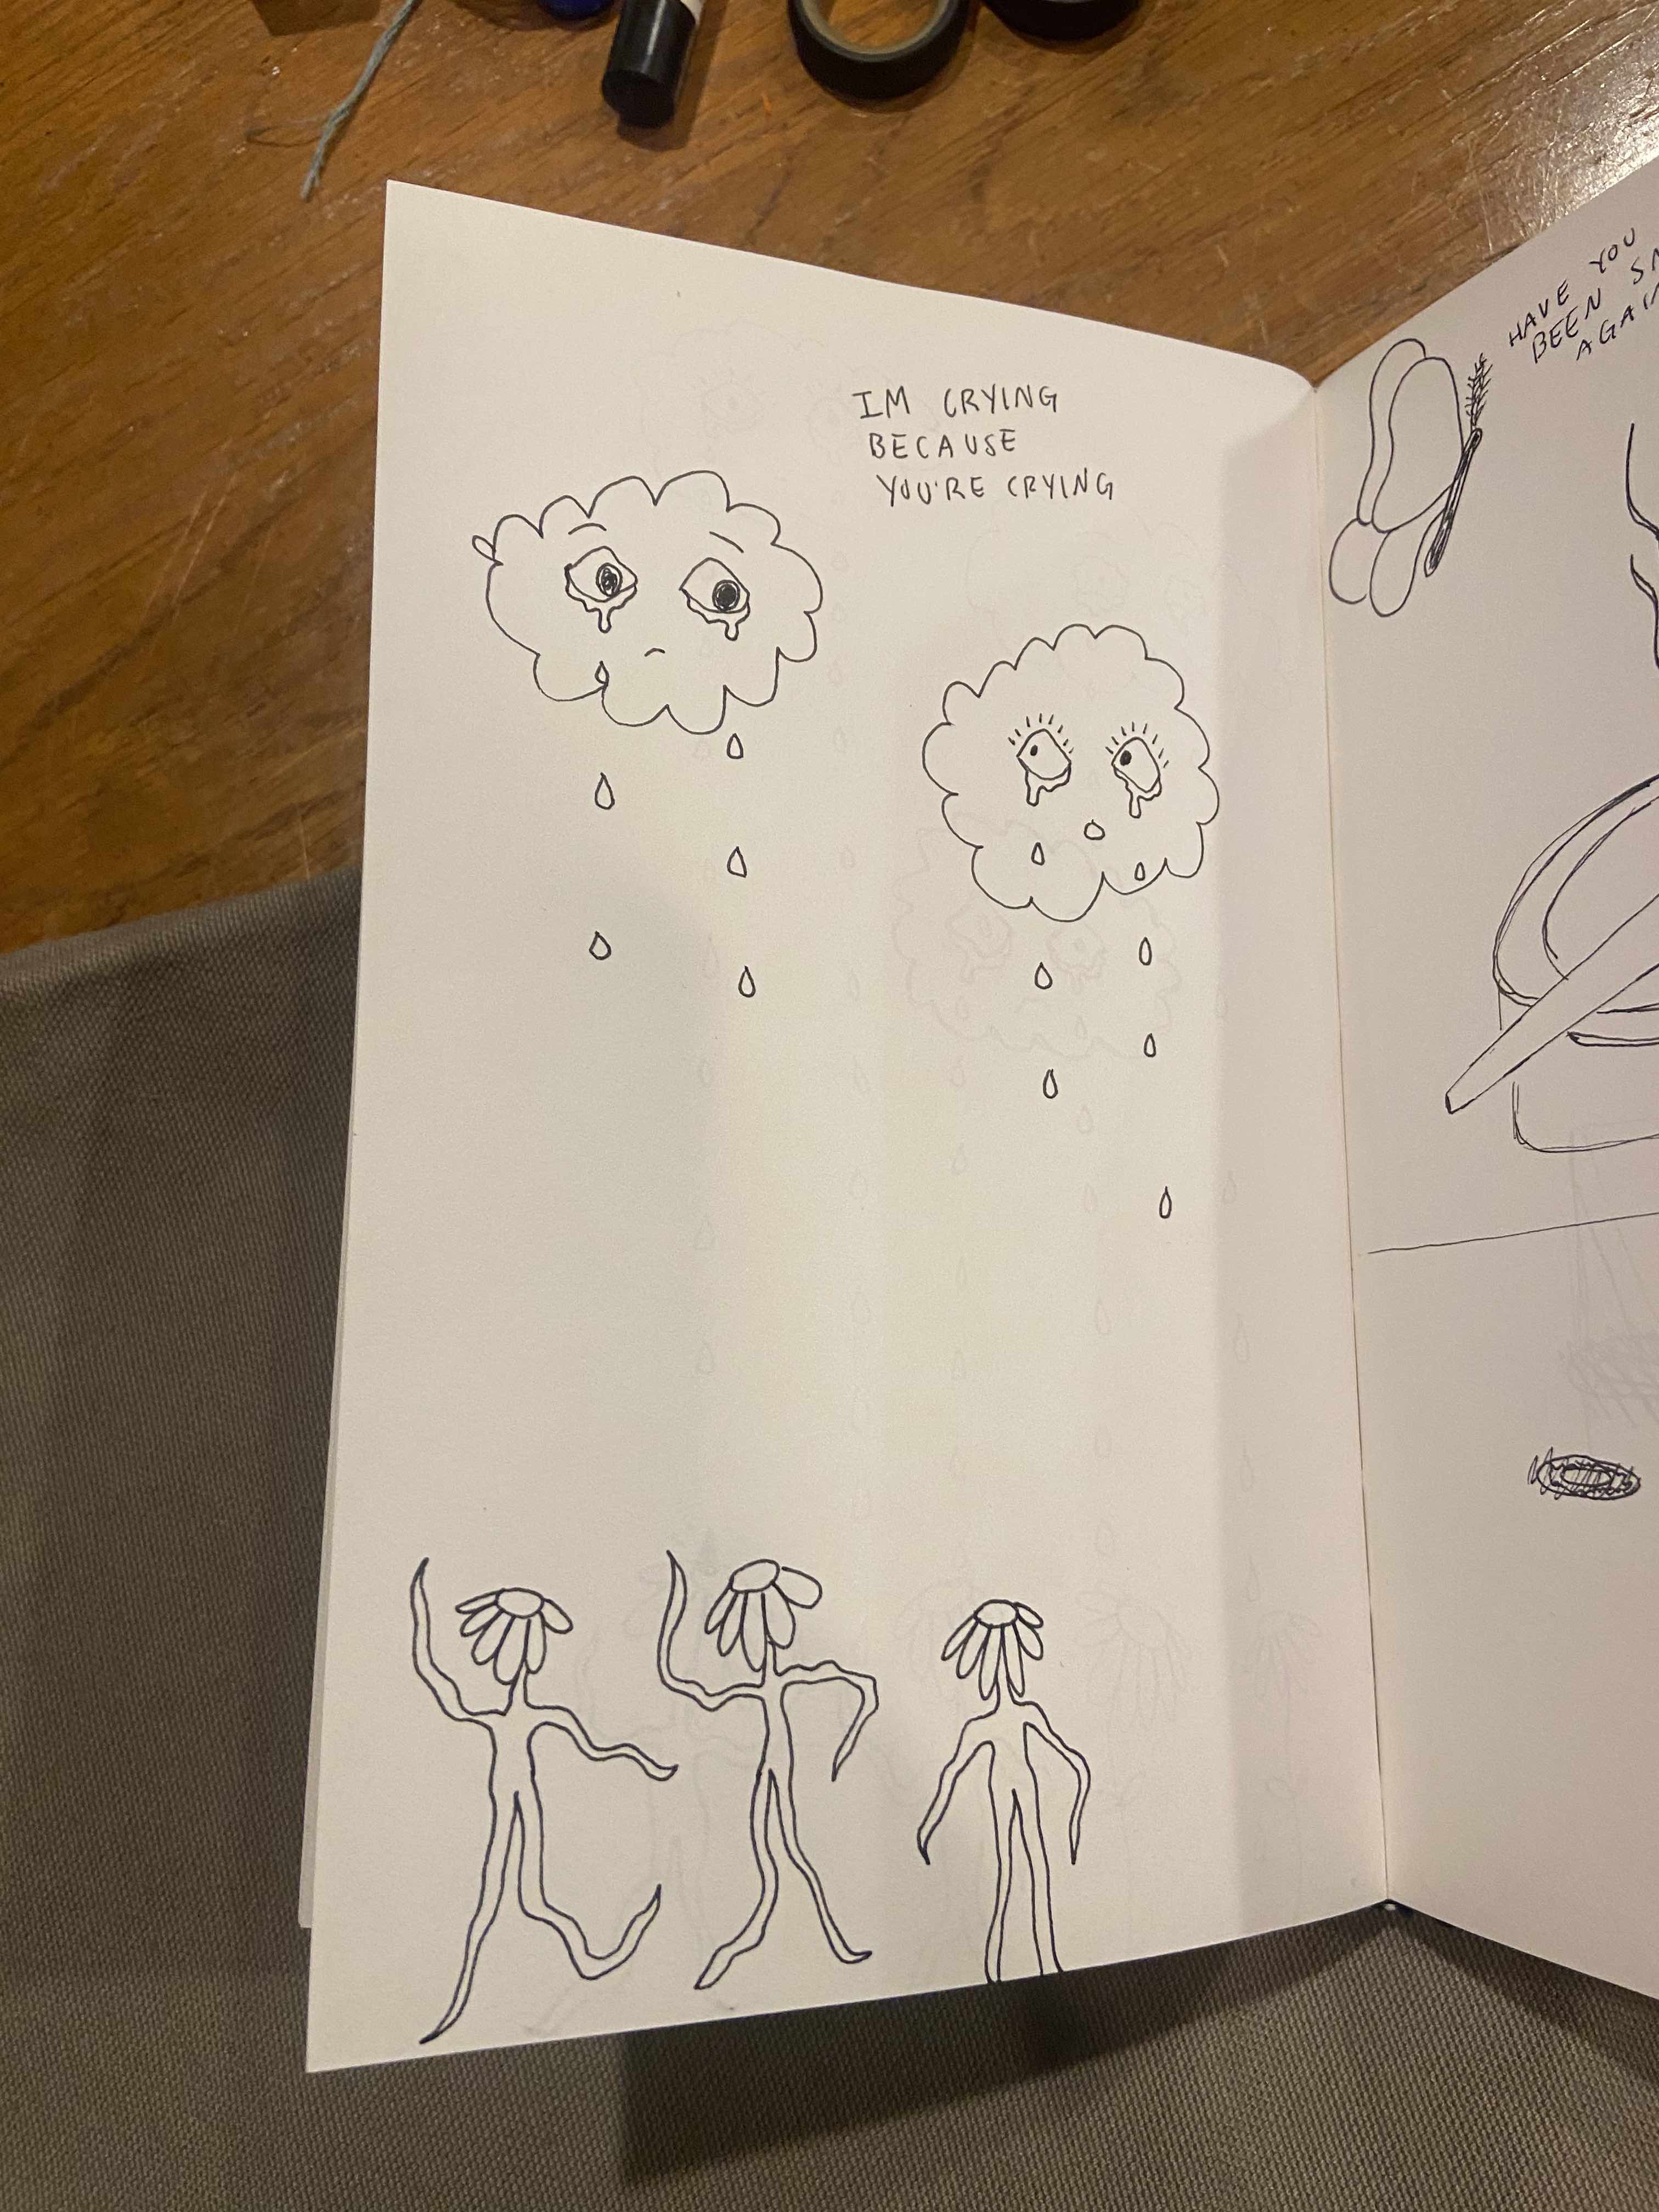 IM CRYING
BECAUSE
YOU'RE CRYING
HAVE YOU
BEEN
AGAIN